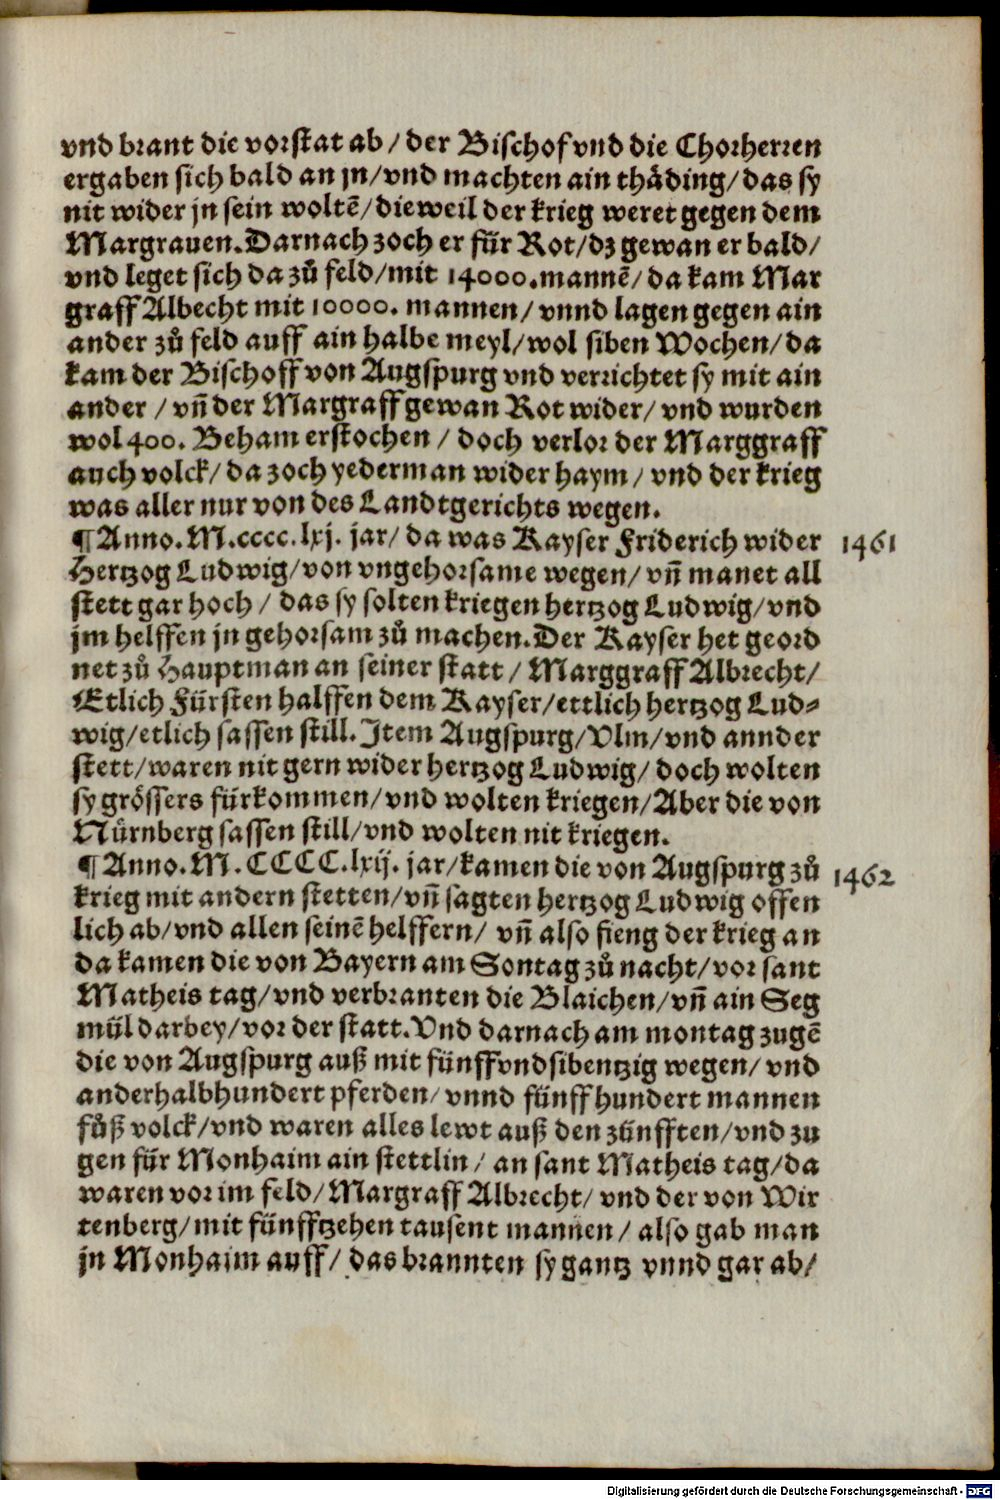 vnd brant die vorstat ab / der Bischof vnd die Chorherren
ergaben sich bald an jn/vnd machten ain thåding/das sy
nit wider jn sein woltē/dieweil der krieg weret gegen dem
Margrauen.Darnach zoch er für Rot/dz gewan er bald/
vnd leget sich da zů feld/mit 14000.mannē/da kam Mar
graff Albecht mit 10000. mannen/ vnnd lagen gegen ain
ander zů feld auff ain halbe meyl/wol siben Wochen/da
kam der Bischoff von Augspurg vnd verrichtet sy mit ain
ander / vn̄ der Margraff gewan Rot wider/ vnd wurden
wol 400. Beham erstochen / doch verlor der Marggraff
auch volck/ da zoch yederman wider haym / vnd der krieg
was aller nur von des Landtgerichts wegen.
¶ Anno. M.cccc.lxj. jar/ da was Kayser Friderich wider 1461
Hertzog Ludwig/von vngehorsame wegen/ vn̄ manet all
stett gar hoch / das sy solten kriegen hertzog Ludwig/vnd
jm helffen jn gehorsam zů machen.Der Kayser het geord
net zů Hauptman an seiner statt / Marggraff Albrecht/
Etlich Fürsten halffen dem Kayser/ettlich hertzog Lud⸗
wig/etlich sassen still.Item Augspurg/Vlm/vnd annder
stett/waren nit gern wider hertzog Ludwig/ doch wolten
sy grössers fürkommen/vnd wolten kriegen/Aber die von
Nürnberg sassen still/vnd wolten nit kriegen.
¶ Anno. M.CCCC.lxij. jar/kamen die von Augspurg zů 1462
krieg mit andern stetten/vn̄ sagten hertzog Ludwig offen
lich ab/vnd allen seinē helffern/ vn̄ also fieng der krieg an
da kamen die von Bayern am Sontag zů nacht/vor sant
Matheis tag/vnd verbranten die Blaichen/vn̄ ain Seg
mül darbey/vor der statt.Vnd darnach am montag zugē
die von Augspurg auß mit fünffvndsibentzig wegen/ vnd
anderhalbhundert pferden/ vnnd fünff hundert mannen
fůß volck/vnd waren alles lewt auß den zünfften/vnd zu
gen für Monhaim ain stettlin/ an sant Matheis tag/da
waren vor im feld/Margraff Albrecht/ vnd der von Wir
tenberg/mit fünfftzehen tausent mannen/ also gab man
jn Monhaim auff/ das brannten sy gantz vnnd gar ab/
Digitalisierung gefördert durch die Deutsche Forschungsgemeinschaft - DFG